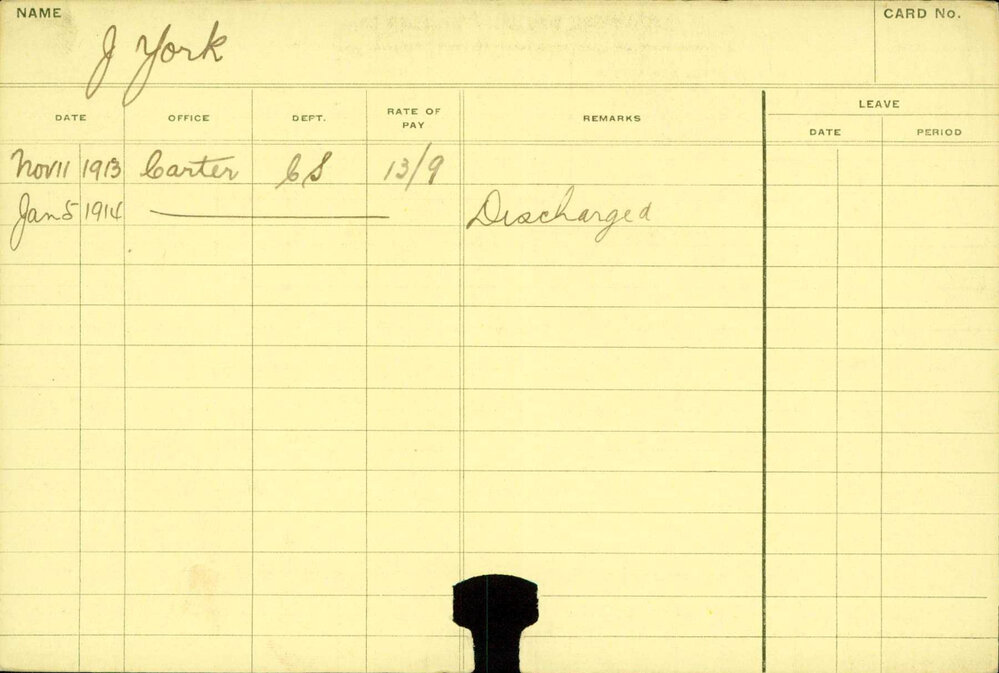 NAME
CARD No.
J York
DATE OFFICE DEPT. RATE OF PAY REMARKS LEAVE
DATE PERIOD
Nov 11 1913 Carter CS 13/9
Jan 5 1914 Discharged